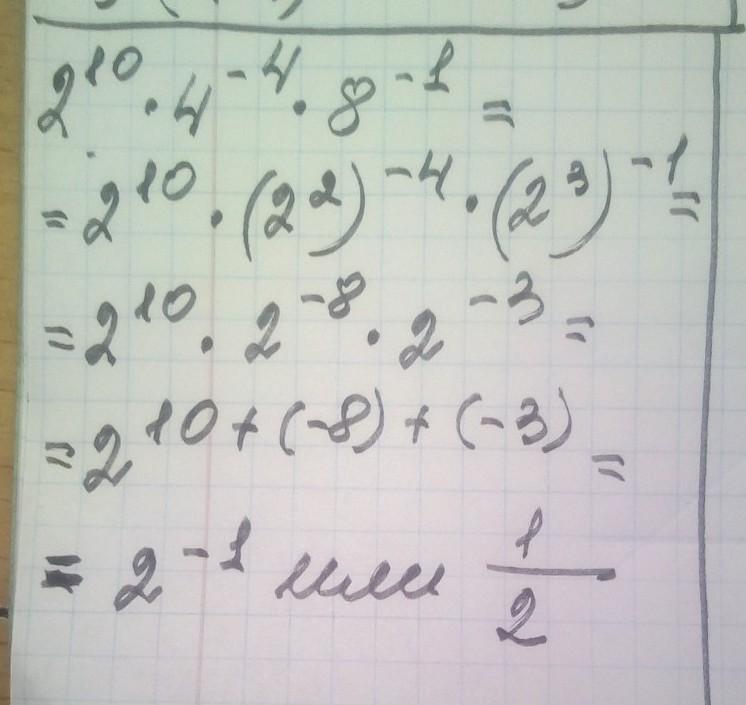 2¹⁰ · 4⁻⁴ · 8⁻¹ =
= 2¹⁰ · (2²)⁻⁴ · (2³)⁻¹ =
= 2¹⁰ · 2⁻⁸ · 2⁻³ =
= 2¹⁰⁺⁽⁻⁸⁾⁺⁽⁻³⁾ =
= 2⁻¹ или 1/2